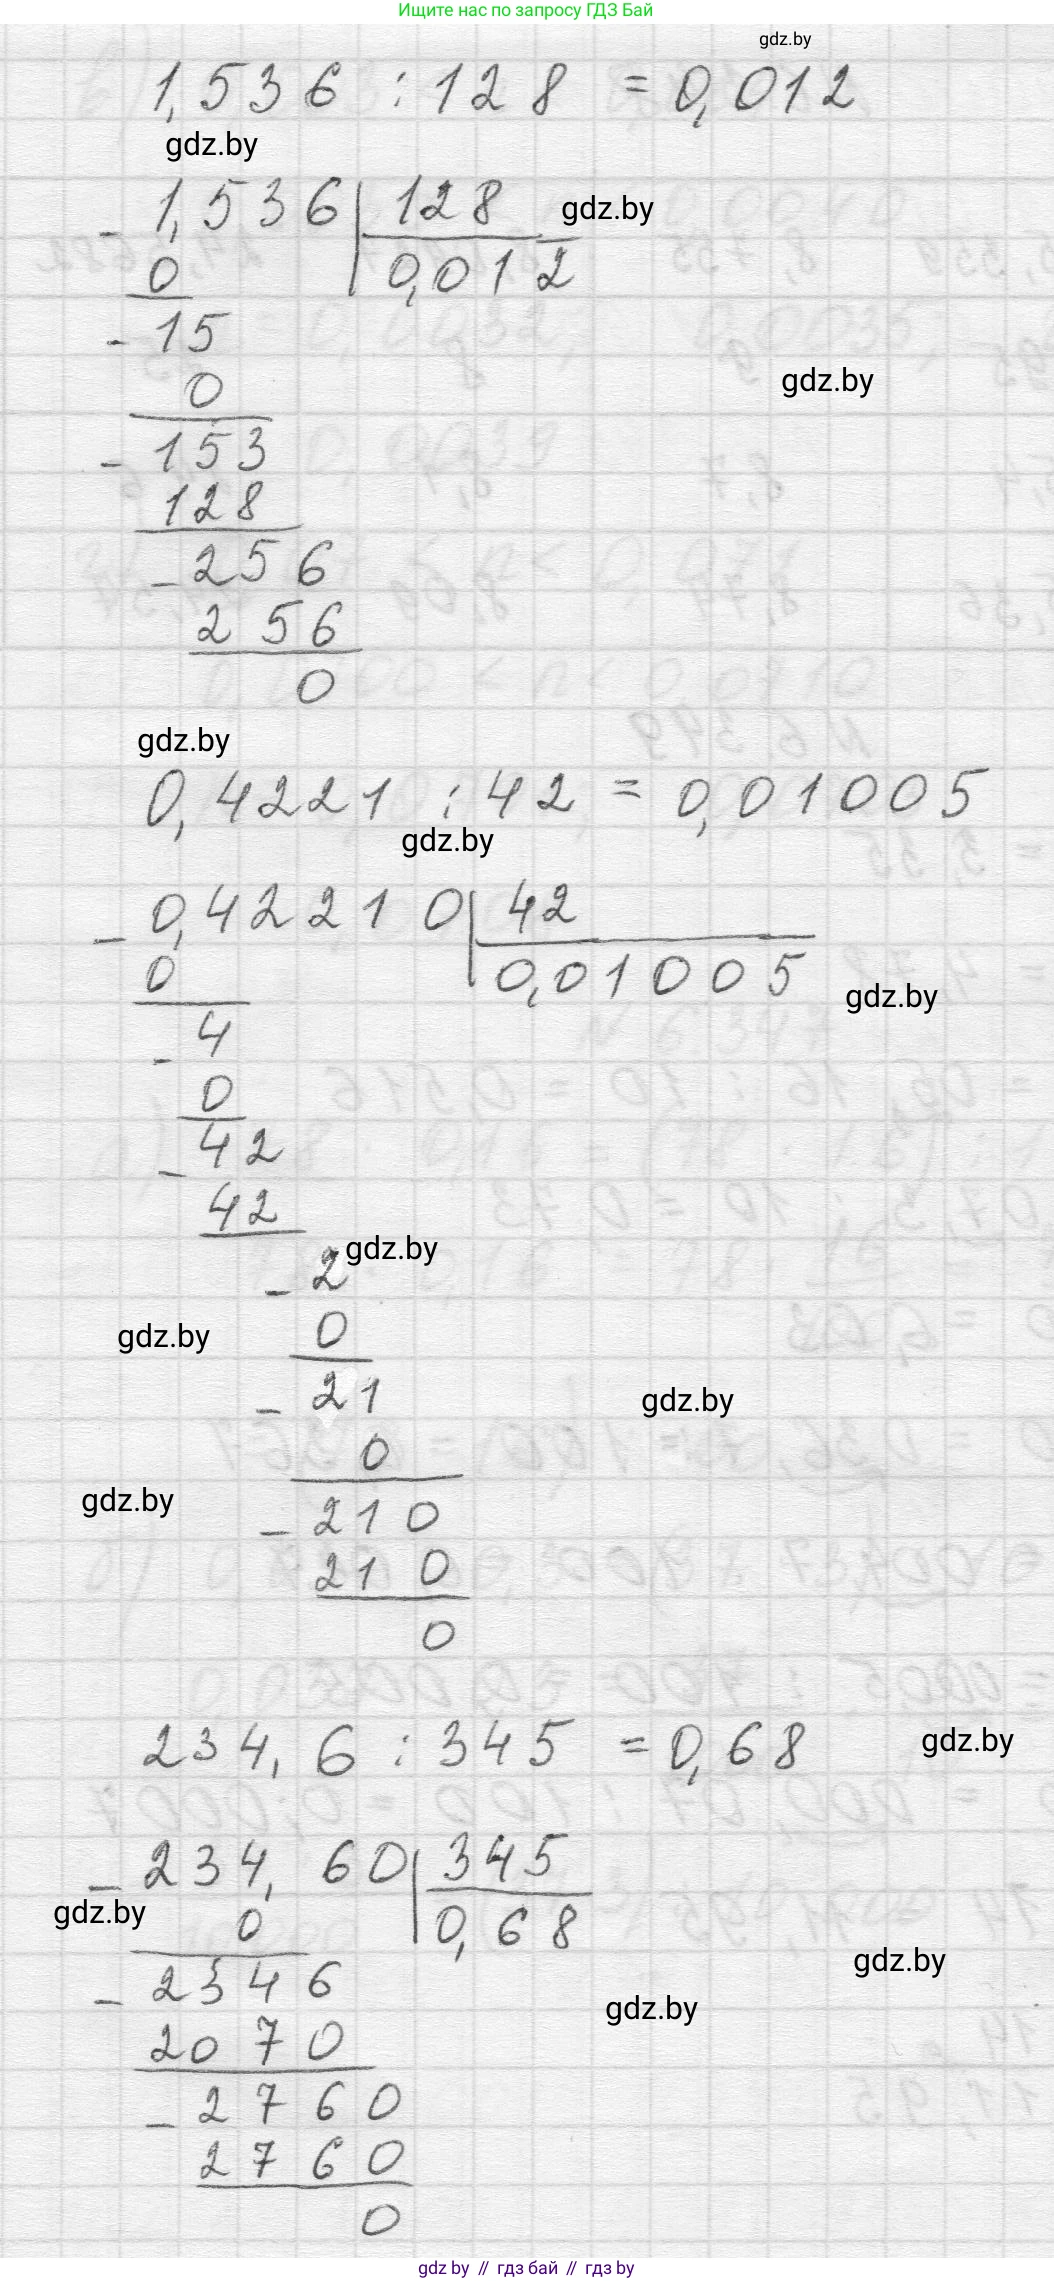 Ищите нас по запросу ГДЗ Бай
gdz.by
1,536 : 128 = 0,012
gdz.by
- 1,536 | 128
gdz.by
0 | 0,012
- 15
0
gdz.by
- 153
128
- 256
256
0
gdz.by
0,4221 : 42 = 0,01005
gdz.by
- 0,42210 | 42
0 | 0,01005
gdz.by
- 4
0
- 42
42
gdz.by
- 2
0
gdz.by
- 21
gdz.by
0
gdz.by
- 210
210
0
234,6 : 345 = 0,68
gdz.by
- 234,60 | 345
gdz.by
0 | 0,68
gdz.by
- 2346
gdz.by
2070
- 2760
2760
0
gdz by // гдз бай // гдз by